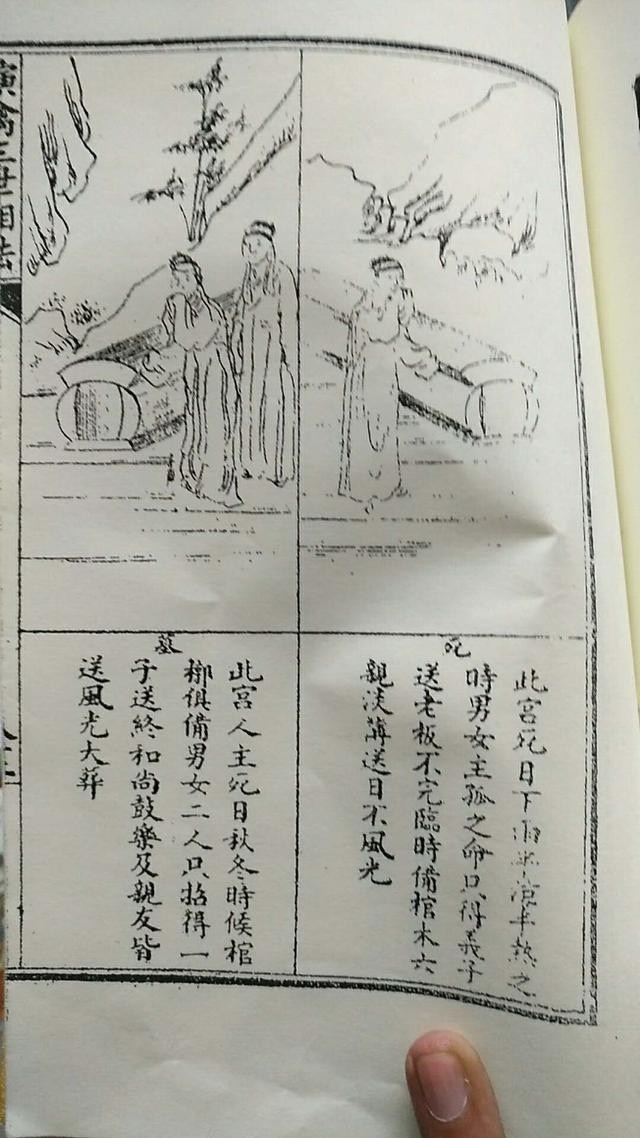 演禽三世相法
死
此宮死日下雨半涼半熱之
時男女主孤之命只得義子
送老板不完臨時備棺木六
親淡薄送日不風光
墓
此宮人主死日秋冬時候棺
槨俱備男女二人只招得一
子送終和尚鼓樂及親友皆
送風光大葬